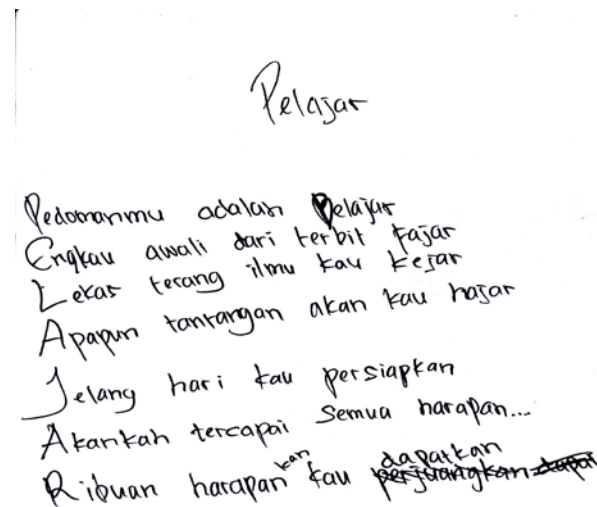 Pelajar
Pedomanmu adalah Pelajar
Engkau awali dari terbit fajar
Lekas terang ilmu kau kejar
Apapun tantangan akan kau hajar
Jelang hari kau persiapkan
Akankah tercapai semua harapan...
Ribuan harapan kan kau dapatkan